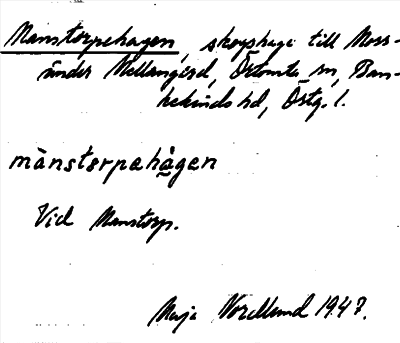 Manstorpehagen, skogshage till Moss-
under Mellangård, Örtomta sn, Ban-
kekinds hd, Östg. l.
mànstorpehàgen
Vid Manstorp.
Maja Norellund 1947.